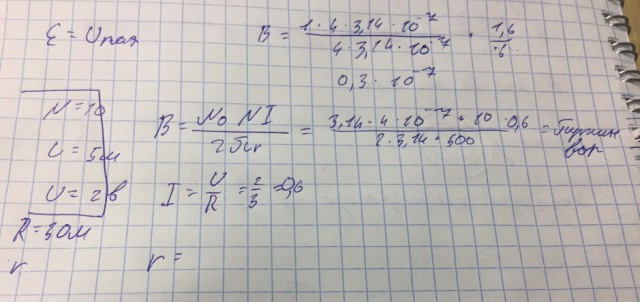 ε = Uпол
B = 1 · 4 · 3,14 · 10⁻⁷ / 4 · 3,14 · 10⁻⁷ · 1,6 / 6
0,3 · 10⁻⁷
N = 10
L = 5м
U = 2 в
R = 3 Ом
r
B = N₀ NI / 2πr = 3,14 · 4 · 10⁻⁷ · 10 · 0,6 / 2 · 3,14 · 500 =
I = U / R = 2 / 3 = 0,6
r =